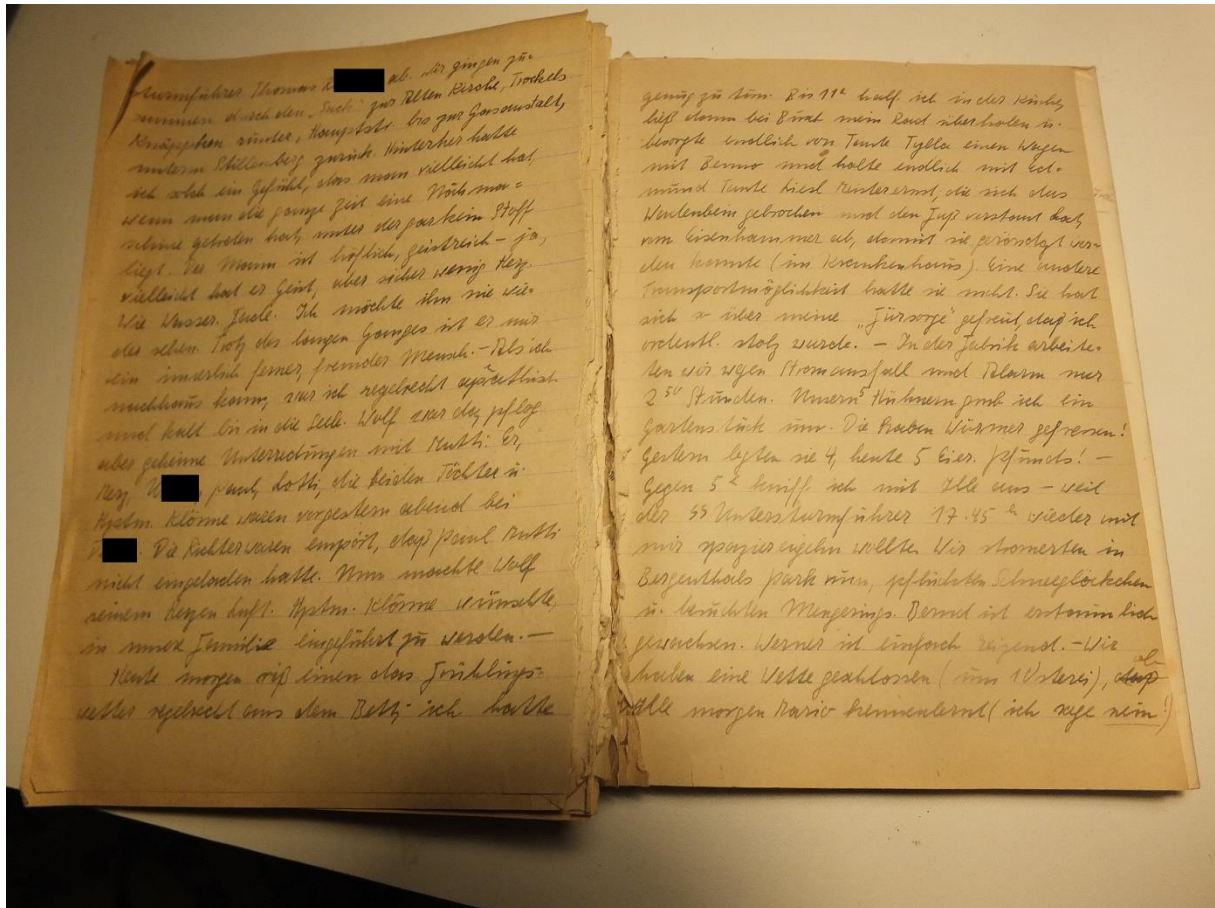 sturmführer Thomas K ab. Wir gingen zu-
sammen durch den „Suck“ zur Alten Kirche, Trockels
Knäppchen runter, Hauptstr. bis zur Gasanstalt,
unterm Stillenberg zurück. Hinterher hatte
ich solch ein Gefühl, das man vielleicht hat,
wenn man die ganze Zeit eine Nähma-
schine getreten hat, unter der gar kein Stoff
liegt. Der Mann ist höflich, geistreich – ja,
vielleicht hat er Geist, aber sicher wenig Herz.
Wie Wasser. Fade. Ich möchte ihn nie wie-
der sehen. Trotz des langen Ganges ist er mir
ein innerlich ferner, fremder Mensch. – Als ich
nachhaus kam, war ich regelrecht apathisch
und kalt bis in die Seele. Wolf war da, pflog
aber geheime Unterredungen mit Mutti: Er,
Herz, W , Paul, Lotti, die beiden Töchter u.
Hptm. Klörne waren vorgestern abend bei
D . Die Töchter waren empört, daß Paul Mutti
nicht eingeladen hatte. Nun machte Wolf
seinem Herzen Luft. Hptm. Klörne wünschte,
in unsere Familie eingeführt zu werden. –
Heute morgen riß einen das Frühlings-
wetter regelrecht aus dem Bett; ich hatte
genug zu tun. Bis 11 half ich in der Küche,
ließ dann bei Birat mein Rad überholen u.
besorgte endlich von Tante Tybla einen Wagen
mit Benno und holte endlich mit Ed-
mund Tante Liesl, die sich das
Wadenbein gebrochen und den Fuß verstaut hat,
vom Eisenhammer ab, damit sie geröntgt wer-
den konnte (im Krankenhaus). Eine andere
Transportmöglichkeit hatte sie nicht. Sie hat
sich so über meine „Fürsorge“ gefreut, daß ich
ordentl. stolz wurde. – In der Fabrik arbeite-
ten wir wgen Stromausfall und Alarm nur
2 50 Stunden. Unsern 5 Hühnern grub ich ein
Gartenstück um. Die haben Würmer gefressen!
Gestern legten sie 4, heute 5 Eier. Pfunds! –
Gegen 5 h kniff ich mit Ille aus – weil
der SS Untersturmführer 17.45 h wieder mit
mir spazierengehn wollte. Wir stromerten in
Bergenthals Park rum, pflückten Schneeglöckchen
u. besuchten Mengerings. Bernd ist erstaunlich
gewachsen. Werner ist einfach reizend. – Wir
haben eine Wette geschlossen (um 1 Osterei), daß ob
Ille morgen Mario kennenlernt (ich sage nein!)